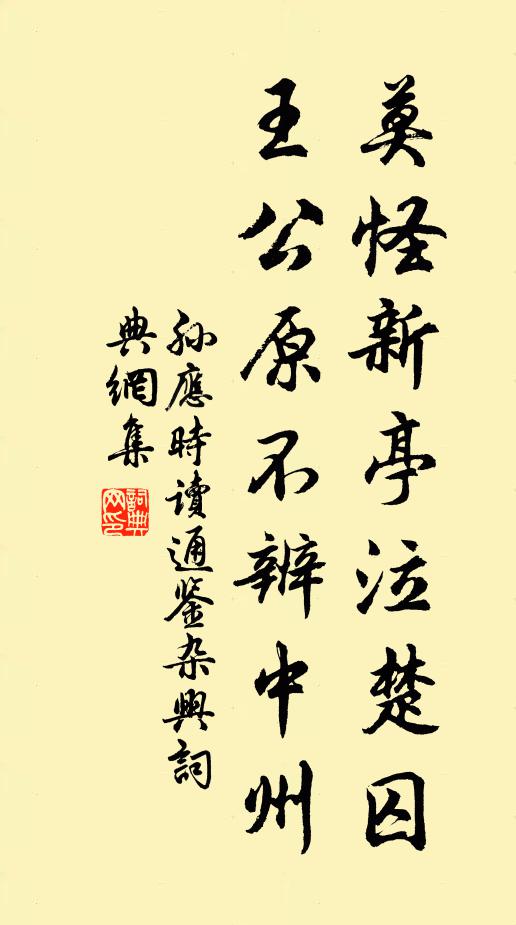 莫怪新亭泣楚囚
王公原不辨中州
孙應時讀通鉴杂興詞
典網集
詞典网印